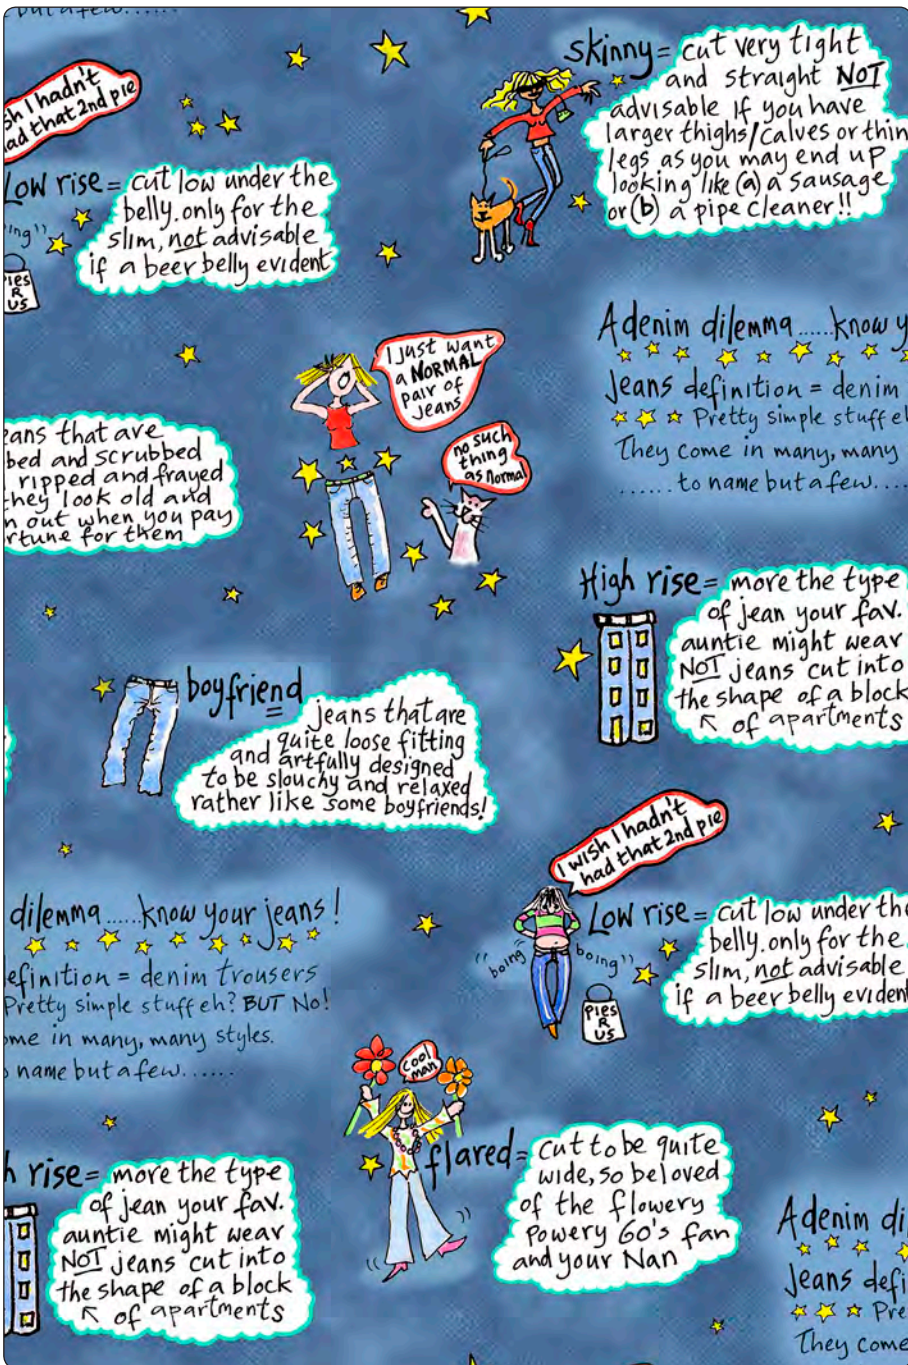 but a few.....
sh I hadn't
ad that 2nd pie
Low rise = cut low under the
belly. only for the
slim, not advisable
if a beer belly evident
ing"
PIES
R
US
skinny = cut very tight
and straight NOT
advisable if you have
larger thighs/calves or thin
legs as you may end up
looking like (a) a sausage
or (b) a pipe cleaner!!
I just want
a NORMAL
pair of
jeans
no such
thing
as normal
A denim dilemma ......know y
Jeans definition = denim
Pretty simple stuff eh
They come in many, many
...... to name but a few....
eans that are
bed and scrubbed
ripped and frayed
they look old and
n out when you pay
rtune for them
High rise = more the type
of jean your fav.
auntie might wear
NOT jeans cut into
the shape of a block
of apartments
boyfriend
jeans that are
quite loose fitting
and artfully designed
to be slouchy and relaxed
rather like some boyfriends!
I wish I hadn't
had that 2nd pie
Low rise = cut low under the
belly. only for the
slim, not advisable
if a beer belly evident
"boing boing"
PIES
R
US
dilemma ......know your jeans!
efinition = denim trousers
Pretty simple stuff eh? BUT No!
ome in many, many styles.
o name but a few......
cool
man
flared = cut to be quite
wide, so beloved
of the flowery
Powery 60's fan
and your Nan
h rise = more the type
of jean your fav.
auntie might wear
NOT jeans cut into
the shape of a block
of apartments
A denim di
Jeans defi
Pre
They come